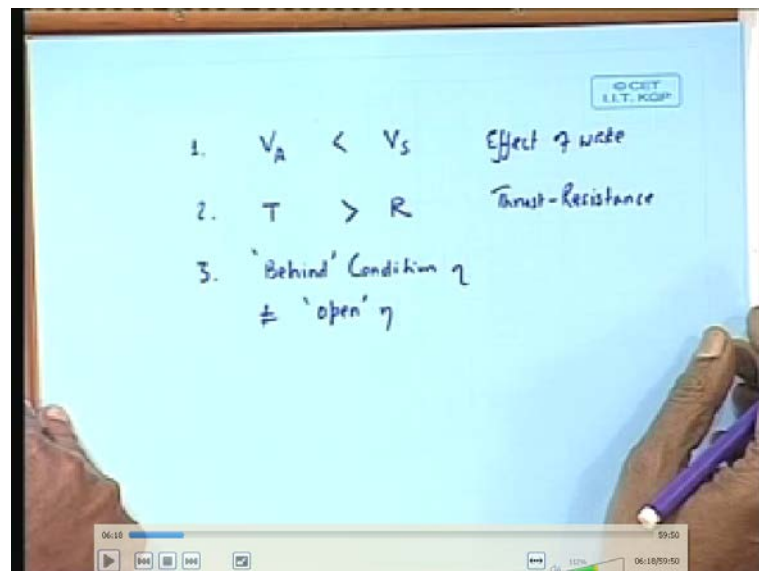 © CET
I.I.T. KGP
1. V_A < V_S Effect of wake
2. T > R Thrust-Resistance
3. 'Behind' Condition η
≠ 'open' η
06:18 59:50
112% 06:18/59:50